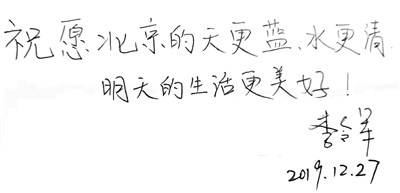 祝愿北京的天更蓝、水更清.
明天的生活更美好!
李令军
2019.12.27